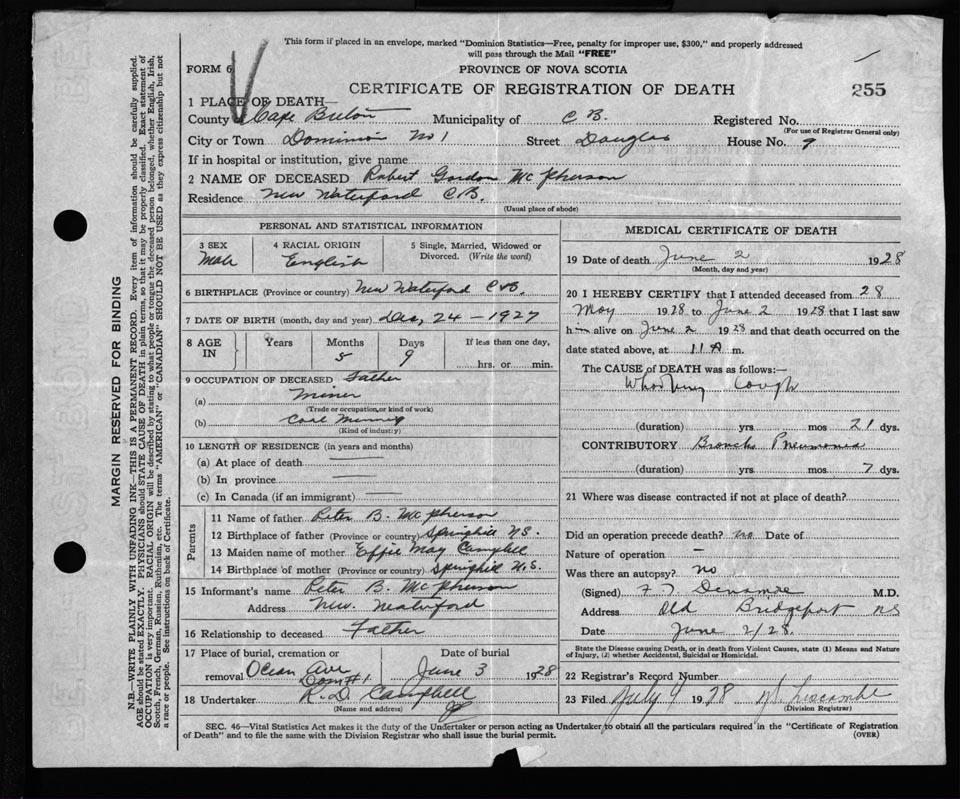 This form if placed in an envelope, marked "Dominion Statistics—Free, penalty for improper use, $300," and properly addressed
will pass through the Mail "FREE"
FORM 6
PROVINCE OF NOVA SCOTIA
CERTIFICATE OF REGISTRATION OF DEATH
255
1 PLACE OF DEATH
County Cape Breton Municipality of C B. Registered No.
(For use of Registrar General only)
City or Town Dominion No 1 Street Douglas House No. 9
If in hospital or institution, give name
2 NAME OF DECEASED Robert Gordon McPherson
Residence New Waterford C.B.
(Usual place of abode)
PERSONAL AND STATISTICAL INFORMATION
3 SEX
Male
4 RACIAL ORIGIN
English
5 Single, Married, Widowed or
Divorced. (Write the word)
6 BIRTHPLACE (Province or country) New Waterford C.B.
7 DATE OF BIRTH (month, day and year) Dec, 24 - 1927
8 AGE
IN
Years Months Days If less than one day,
5 9 hrs. or min.
9 OCCUPATION OF DECEASED Father
(a) Miner
(Trade or occupation, or kind of work)
(b) Coal Mining
(Kind of industry)
10 LENGTH OF RESIDENCE (in years and months)
(a) At place of death
(b) In province
(c) In Canada (if an immigrant)
Parents
11 Name of father Peter B. McPherson
12 Birthplace of father (Province or country) Springhill N.S.
13 Maiden name of mother Effie May Campbell
14 Birthplace of mother (Province or country) Springhill N.S.
15 Informant's name Peter B. McPherson
Address New. Waterford
16 Relationship to deceased Father
17 Place of burial, cremation or Date of burial
removal Ocean Ave Dom #1 June 3 1928
18 Undertaker R. D. Campbell
(Name and address)
MEDICAL CERTIFICATE OF DEATH
19 Date of death June 2 1928
(Month, day and year)
20 I HEREBY CERTIFY that I attended deceased from 28
May 1928 to June 2 1928 that I last saw
him alive on June 2 1928 and that death occurred on the
date stated above, at 11 A m.
The CAUSE of DEATH was as follows:—
Whooping Cough
(duration) yrs mos 21 dys.
CONTRIBUTORY Broncho Pneumonia
(duration) yrs. mos. 7 dys.
21 Where was disease contracted if not at place of death?
Did an operation precede death? no Date of
Nature of operation —
Was there an autopsy? no
(Signed) M.D.
Address Old Bridgeport NS
Date June 2/28.
State the Disease causing Death, or in death from Violent Causes, state (1) Means and Nature
of Injury, (2) whether Accidental, Suicidal or Homicidal.
22 Registrar's Record Number
23 Filed July 1928
(Division Registrar)
SEC. 46—Vital Statistics Act makes it the duty of the Undertaker or person acting as Undertaker to obtain all the particulars required in the "Certificate of Registration
of Death" and to file the same with the Division Registrar who shall issue the burial permit.
(OVER)
MARGIN RESERVED FOR BINDING
N.B.—WRITE PLAINLY WITH UNFADING INK—THIS IS A PERMANENT RECORD. Every item of information should be carefully supplied.
AGE should be stated EXACTLY. PHYSICIANS should STATE CAUSE OF DEATH in plain terms, so that it may be properly classified. Exact statement of
OCCUPATION is very important. RACIAL ORIGIN will be described by stating to what people or tongue the deceased person belonged, whether English, Irish,
Scotch, French, German, Russian, Ruthenian, etc. The terms "AMERICAN" or "CANADIAN" SHOULD NOT BE USED as they express citizenship but not
a race or people. See instructions on back of Certificate.